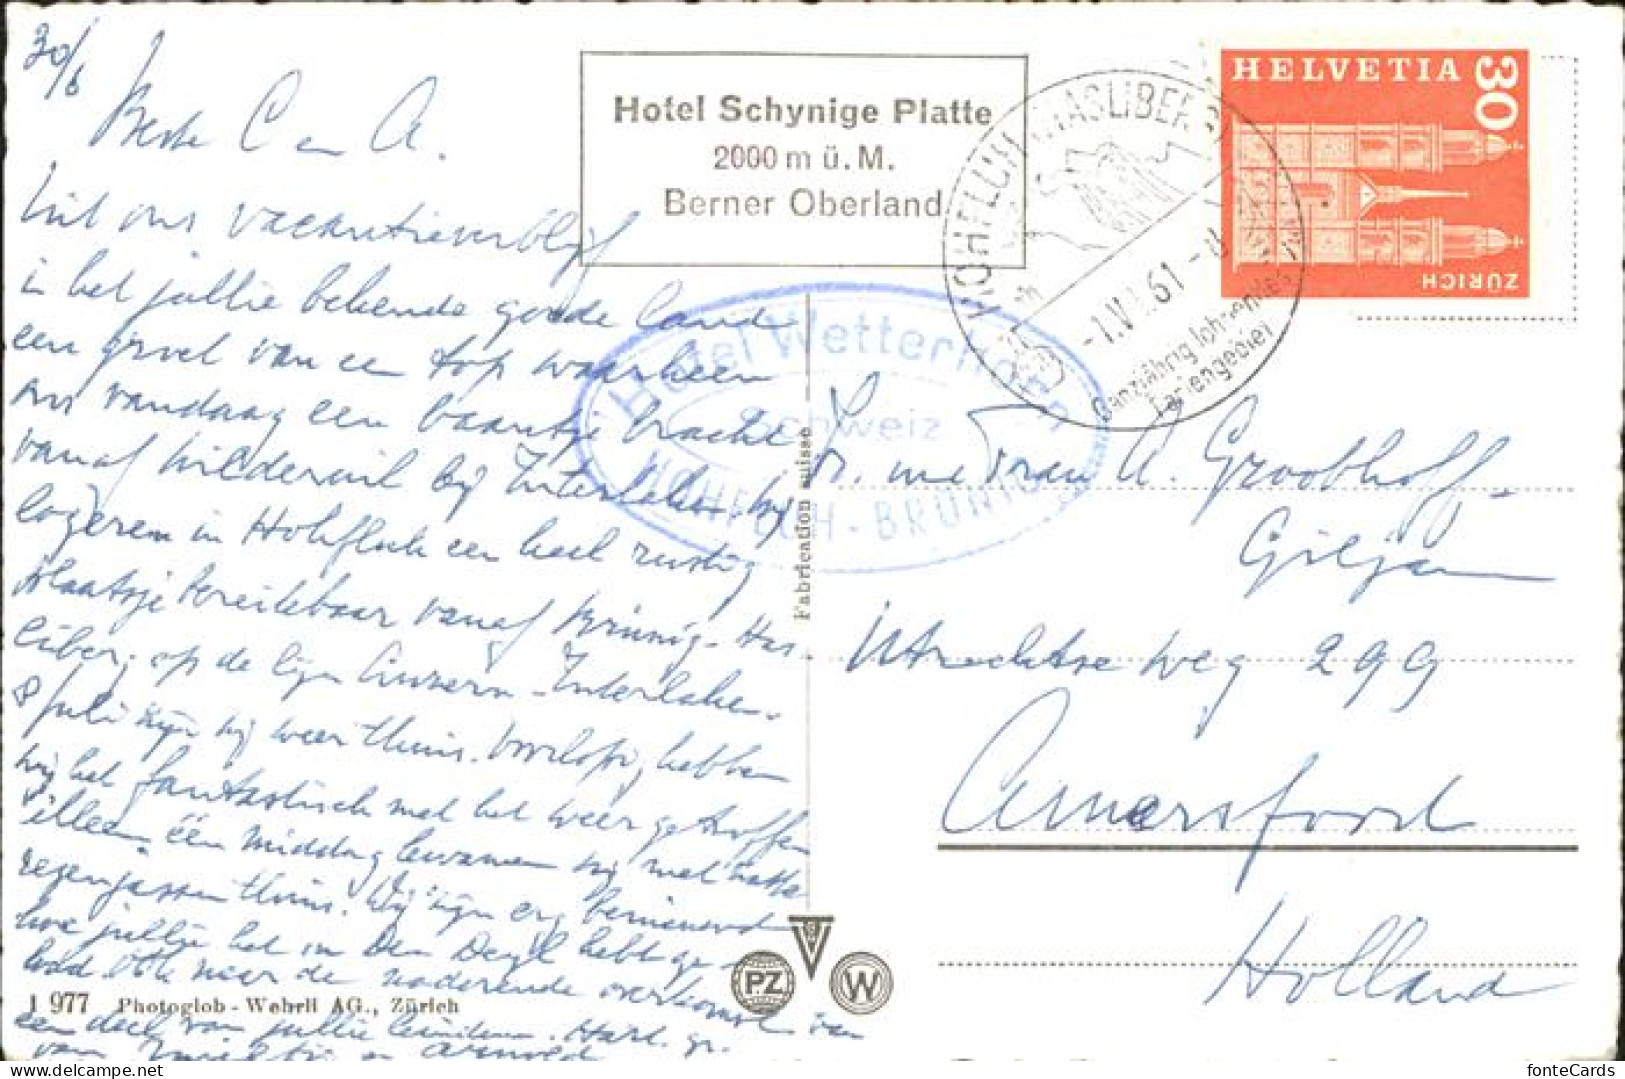 30/6
Beste C en A.
Uit ons vacantieverblijf
in het jullie bekende goede land
een groet van een top waarheen
ons vandaag een baantje bracht
vanaf Wilderswil bij Interlaken. Wij
logeren in Hohfluh een heel rustig
plaatsje bereikbaar vanaf Brünig-Has-
liberg op de lijn Luzern-Interlaken.
8 juli zijn wij weer thuis. Voorlopig hebben
wij het fantastisch met het weer getroffen
alleen één middag kwamen wij met natte
regenjassen thuis. Wij zijn erg benieuwd
hoe jullie het in Den Deyl hebt ge-
had Ook naar de naderende overkomst van
een deel van jullie kinderen. Hart. gr.
van en Arnold
Hotel Schynige Platte
2000 m ü. M.
Berner Oberland
HELVETIA
30
ZÜRICH
HOHFLUH HASLIBERG
-1.VII.61-8
Ganzjährig lohnendes
Feriengebiet
Hotel Wetterhorn
Schweiz
HOHFLUH-BRÜNIG
Fabrication suisse
Hr. en Mevrouw A. Groothoff-
Giljam
Utrechtse weg 299
Amersfoord
Holland
PZ
W
1 977 Photoglob-Wehrli AG., Zürich
fonteCards